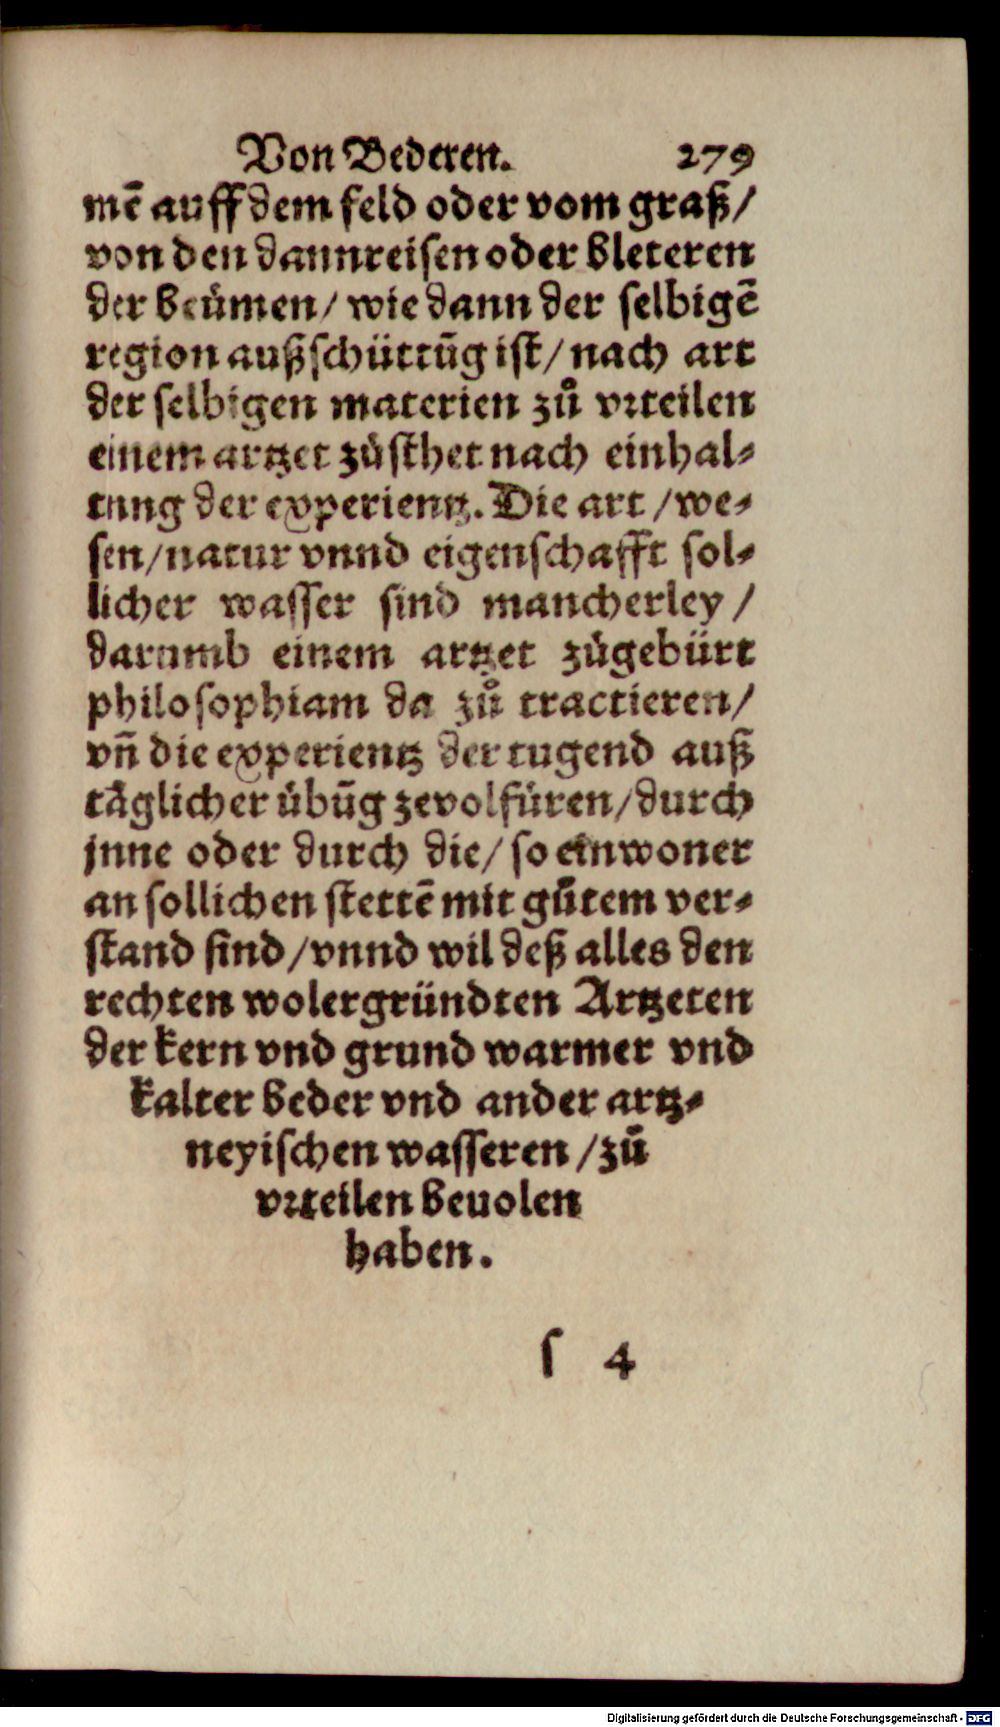 Von Bederen. 279
mẽ auff dem feld oder vom graß/
von den dannreisen oder bleteren
der beümen/ wie dann der selbigẽ
region außschüttũg ist/ nach art
der selbigen materien zů vrteilen
einem artzet zůsthet nach einhal⸗
tung der experientz. Die art / we⸗
sen/ natur vnnd eigenschafft sol⸗
licher wasser sind mancherley /
darumb einem artzet zůgebürt
philosophiam da zů tractieren/
vñ die experientz der tugend auß
tåglicher übũg zevolfüren/ durch
jnne oder durch die/ so einwoner
an sollichen stettẽ mit gůtem ver⸗
stand sind/ vnnd wil deß alles den
rechten wolergründten Artzeten
der kern vnd grund warmer vnd
kalter beder vnd ander artz⸗
neyischen wasseren / zů
vrteilen beuolen
haben.
ſ 4
Digitalisierung gefördert durch die Deutsche Forschungsgemeinschaft - DFG